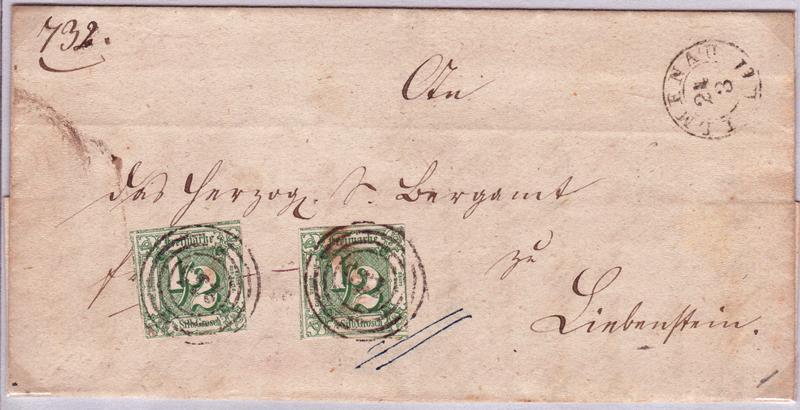 732.
ILMENAU
24
3
An
das Herzogl. S. Bergamt
Freimarke Freimarke
1/2 1/2
Silb.Grosch. Silb.Grosch.
zu
Liebenstein.